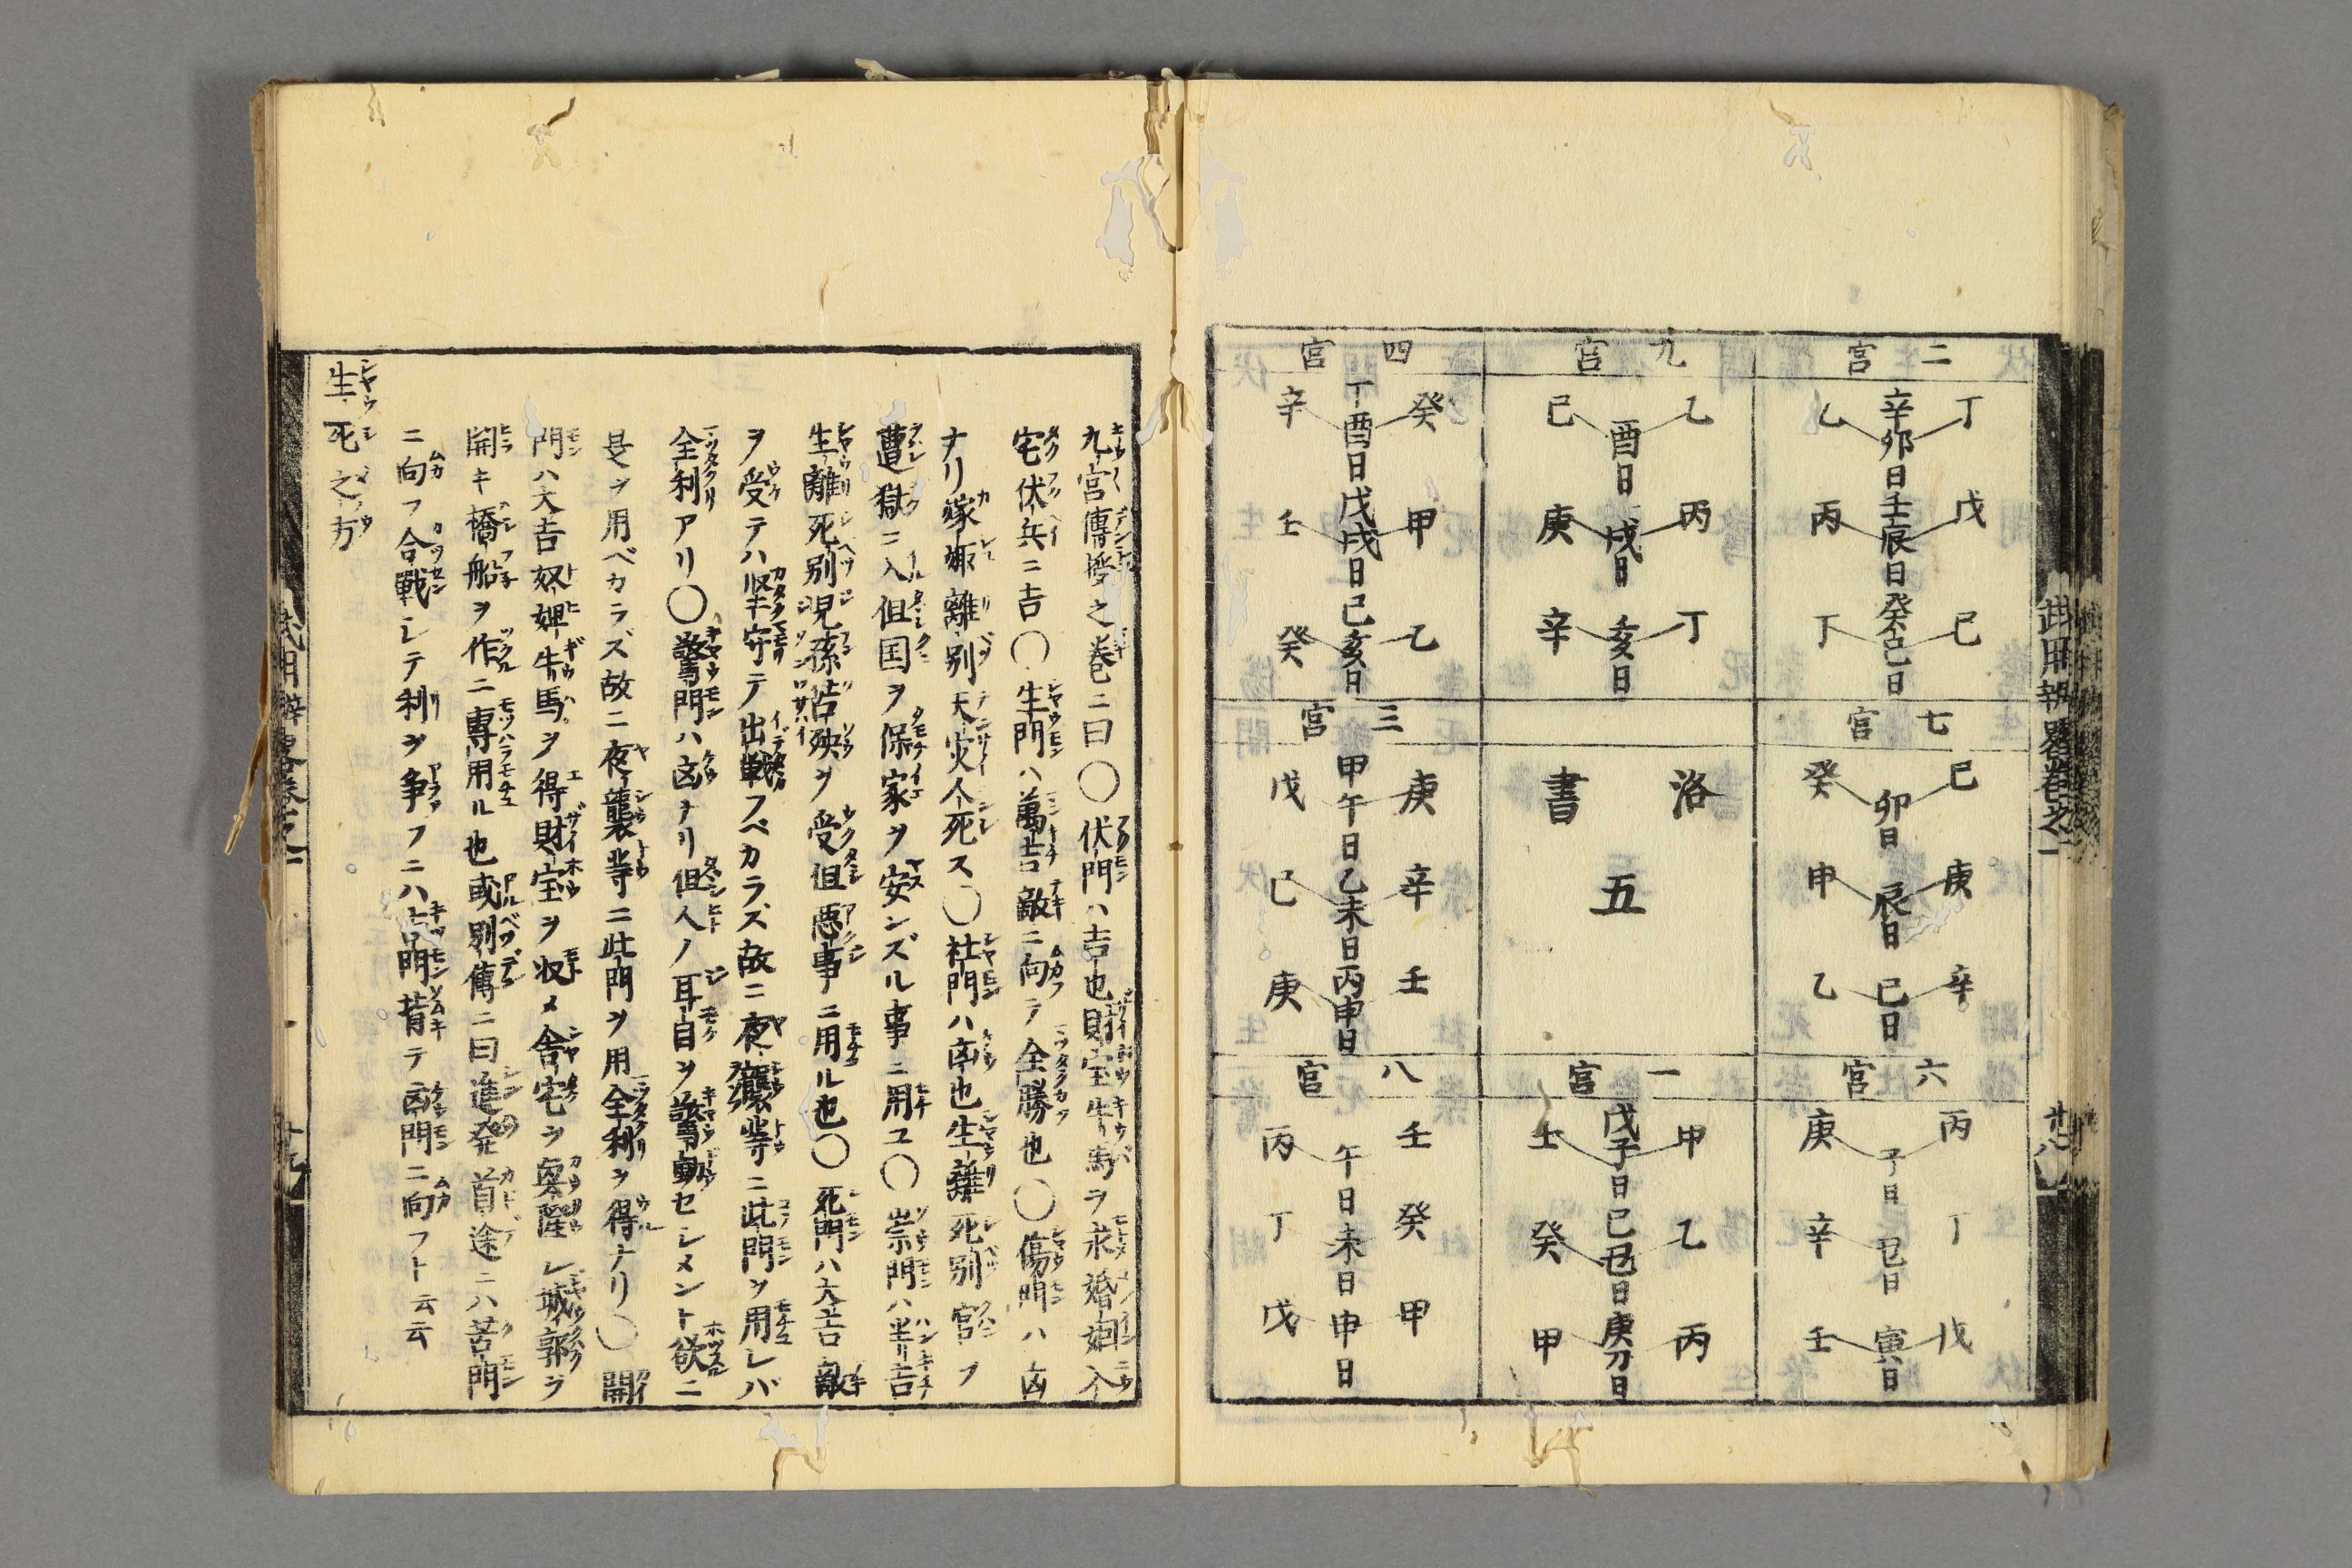 二宮
丁 辛卯日 乙
戊 壬辰日 丙
己 癸巳日 丁
九宮
乙 酉日 己
丙 戌日 庚
丁 亥日 辛
四宮
癸 丁酉日 辛
甲 戊戌日 壬
乙 己亥日 癸
七宮
己 卯日 癸
庚 辰日 甲
辛 巳日 乙
洛書
五
三宮
庚 甲午日 戊
辛 乙未日 己
壬 丙申日 庚
六宮
丙 子日 庚
丁 丑日 辛
戊 寅日 壬
一宮
甲 戊子日 壬
乙 己丑日 癸
丙 庚寅日 甲
八宮
壬 午日 丙
癸 未日 丁
甲 申日 戊
武用辨畧巻之一
廿八
九宮傳授之巻ニ曰○伏門ハ吉也財宝牛馬ヲ求婚姻入
宅伏兵ニ吉○生門ハ萬吉敵ニ向テ全勝也○傷門ハ凶
ナリ嫁娵離別天災人死ス○杜門ハ凶也生離死別官フ
遭獄ニ入但国ヲ保家ヲ安ンズル事ニ用ユ○崇門ハ半吉
生離死別児孫ヲ受但悪事ニ用ル也○死門ハ大吉敵
ヲ受テハ堅守テ出戦フベカラズ故ニ夜襲等ニ此門ヲ用レバ
全利アリ○驚門ハ凶ナリ但人ノ耳目ヲ驚動セシメント欲ニ
是ヲ用ベカラズ故ニ夜襲等ニ此門ヲ用全利ヲ得ナリ○開
門ハ大吉奴婢牛馬ヲ得財宝ヲ収メ舎宅ヲ興隆シ城郭ヲ
開キ橋船ヲ作ニ專用ル也或別傳ニ曰進発首途ニハ苦門
ニ向フ合戰シテ利ヲ争フニハ吉門背テ凶門ニ向フト云云
生死之方